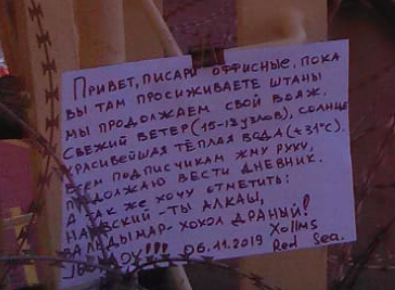 Привет, писари оффисные, пока
вы там просиживаете штаны
мы продолжаем свой вояж.
Свежий ветер (15-18 узлов), солнце
красивейшая тёплая вода (+31°С).
Всем подписчикам жму руку,
продолжаю вести дневник.
А так же хочу отметить:
-ты алкаш,
Вальдымар- хохол драный!
06.11.2019 Xollms
Red Sea.